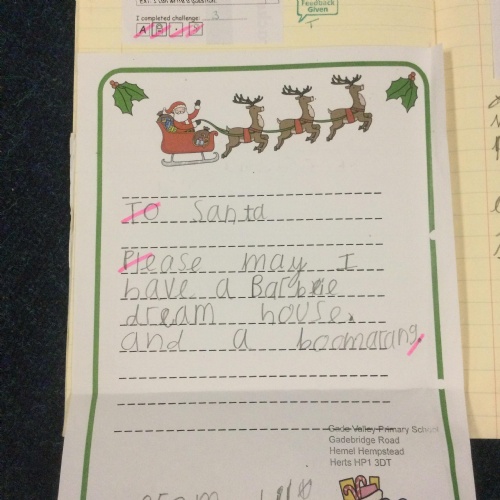 I completed challenge: 3
Feedback
Given
To Santa
Please may I
have a Barbie
dream house.
and a boomarang.
Gade Valley Primary School
Gadebridge Road
Hemel Hempstead
Herts HP1 3DT